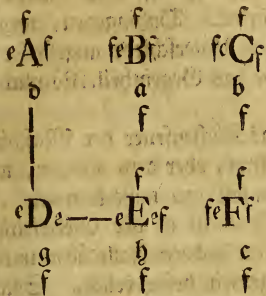 f f f
eAf feBf feCf
d a b
f f
f f
eDe——eEef feFf
g h c
f f f